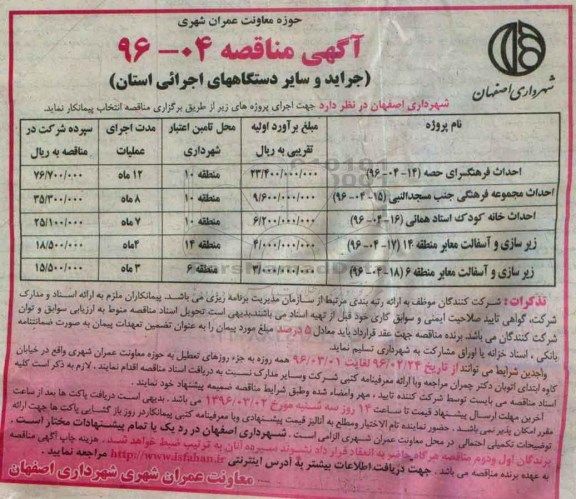 حوزه معاونت عمران شهری
آگهی مناقصه ۰۴-۹۶
(جراید و سایر دستگاههای اجرائی استان)
شهرداری اصفهان
شهرداری اصفهان در نظر دارد جهت اجرای پروژه های زیر از طریق برگزاری مناقصه انتخاب پیمانکار نماید.
نام پروژه مبلغ برآورد اولیه تقریبی به ریال محل تامین اعتبار شهرداری مدت اجرای عملیات سپرده شرکت در مناقصه به ریال
احداث فرهنگسرای حصه (۱۴-۰۴-۹۶) ۲۳/۴۰۰/۰۰۰/۰۰۰ منطقه ۱۰ ۱۲ ماه ۷۶/۷۰۰/۰۰۰
احداث مجموعه فرهنگی جنب مسجدالنبی (۱۵-۰۴-۹۶) ۹/۶۰۰/۰۰۰/۰۰۰ منطقه ۱۰ ۸ ماه ۳۵/۳۰۰/۰۰۰
احداث خانه کودک استاد همائی (۱۶-۰۴-۹۶) ۶/۲۰۰/۰۰۰/۰۰۰ منطقه ۱۰ ۷ ماه ۲۵/۱۰۰/۰۰۰
زیر سازی و آسفالت معابر منطقه ۱۴ (۱۷-۰۴-۹۶) ۴/۰۰۰/۰۰۰/۰۰۰ منطقه ۱۴ ۴ماه ۱۸/۵۰۰/۰۰۰
زیر سازی و آسفالت معابر منطقه ۶ (۱۸-۰۴-۹۶) ۳/۰۰۰/۰۰۰/۰۰۰ منطقه ۶ ۳ ماه ۱۵/۵۰۰/۰۰۰
تذکرات : شرکت کنندگان موظف به ارائه رتبه بندی مرتبط از سازمان مدیریت برنامه ریزی می باشد. پیمانکاران ملزم به ارائه اسناد و مدارک
شرکت، گواهی تایید صلاحیت ایمنی و سوابق کاری خود قبل از تهیه اسناد می باشند.بدیهی است تحویل اسناد مناقصه منوط به ارزیابی سوابق و توان
شرکت کنندگان می باشد. برنده مناقصه جهت عقد قرارداد باید معادل ۵ درصد مبلغ مورد پیمان را به عنوان تضمین تعهدات پیمان به صورت ضمانتنامه
بانکی ، اسناد خزانه یا اوراق مشارکت به شهرداری تسلیم نماید.
واجدین شرایط می توانند از تاریخ ۹۶/۰۲/۲۴ لغایت ۹۶/۰۳/۰۱ همه روزه به جزء روزهای تعطیل به حوزه معاونت عمران شهری واقع در خیابان
کاوه ابتدای اتوبان دکتر چمران مراجعه وبا ارائه معرفینامه کتبی شرکت وسایر مدارک نسبت به دریافت اسناد مناقصه اقدام نمایند . لازم به ذکر است کلیه
اسناد مناقصه می بایست توسط شرکت کننده تایید ، مهر وامضاء شده وطبق شرایط مناقصه ضمیمه پیشنهاد خود نمایند .
آخرین مهلت ارسال پیشنهاد قیمت تا ساعت ۱۴ روز سه شنبه مورخ ۱۳۹۶/۰۳/۰۲ می باشد . بدیهی است دریافت پاکت ها بعد از ساعت
مقرر امکان پذیر نمی باشد . حضور نماینده تام الاختیار ومطلع به آنالیز قیمت پیشنهادی وبا معرفینامه کتبی پیمانکاردر روز باز گشایی پاکت ها جهت ارائه
توضیحات تکمیلی اجمالی در محل معاونت عمران شهری الزامی است . شهرداری اصفهان در رد یک یا تمام پیشنهادات مختار است .
برندگان اول ودوم مناقصه هرگاه حاضر به انعقاد قرار داد نشوند سپرده آنان به ترتیب ضبط خواهد شد. هزینه چاپ آگهی مناقصه
به عهده برنده مناقصه می باشد . جهت دریافت اطلاعات بیشتر به آدرس اینترنتی http://www.isfahan.ir مراجعه نمایید .
معاونت عمران شهری شهرداری اصفهان